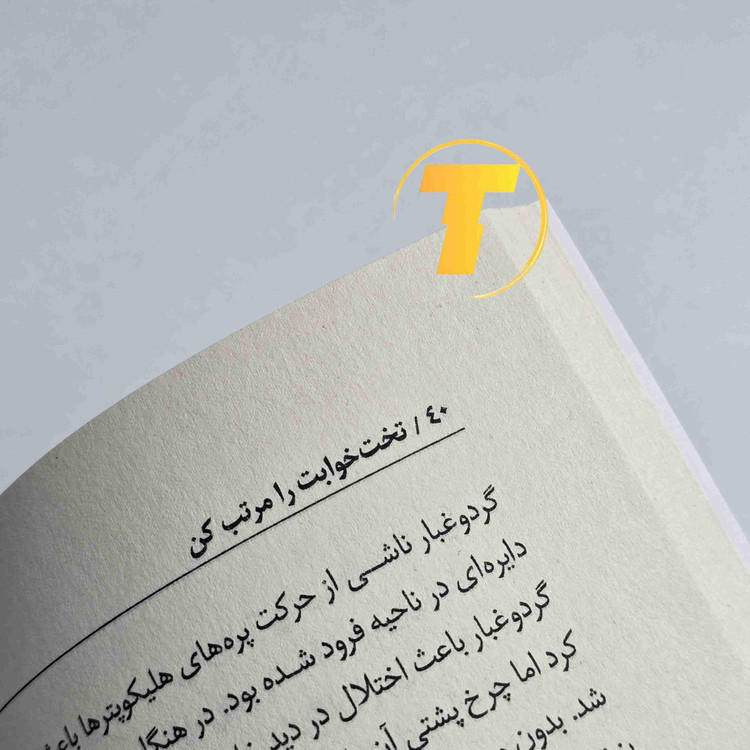 T
۴۰ / تخت‌خوابت را مرتب کن
گردوغبار ناشی از حرکت پره‌های هلیکوپترها
دایره‌ای در ناحیه فرود شده بود. در
گردوغبار باعث اختلال در
کرد اما چرخ پشتی
شد. بدون